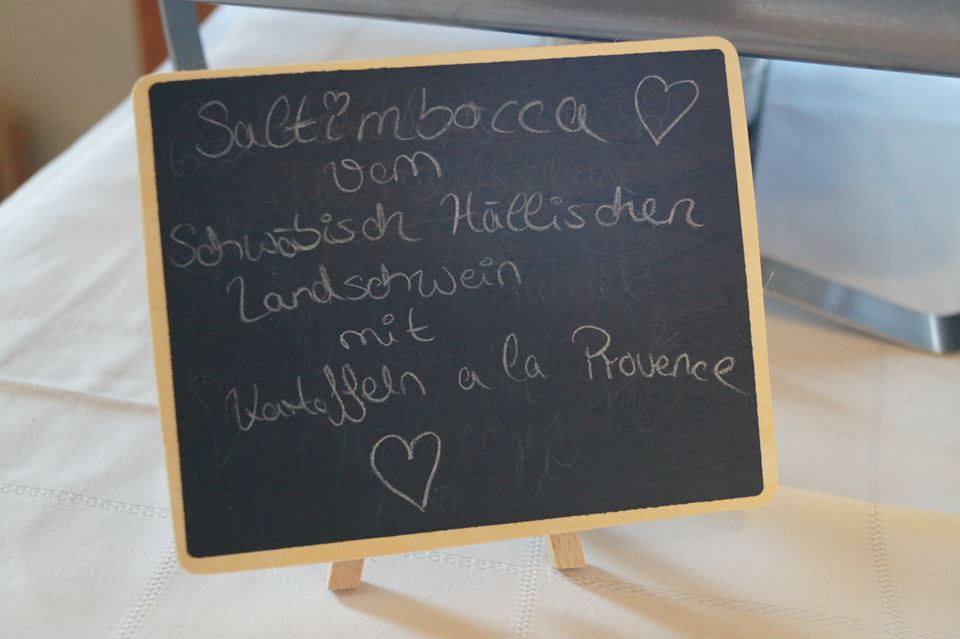 Saltimbocca
vom
Schwäbisch Hällischen
Landschwein
mit
Kartoffeln a la Provence